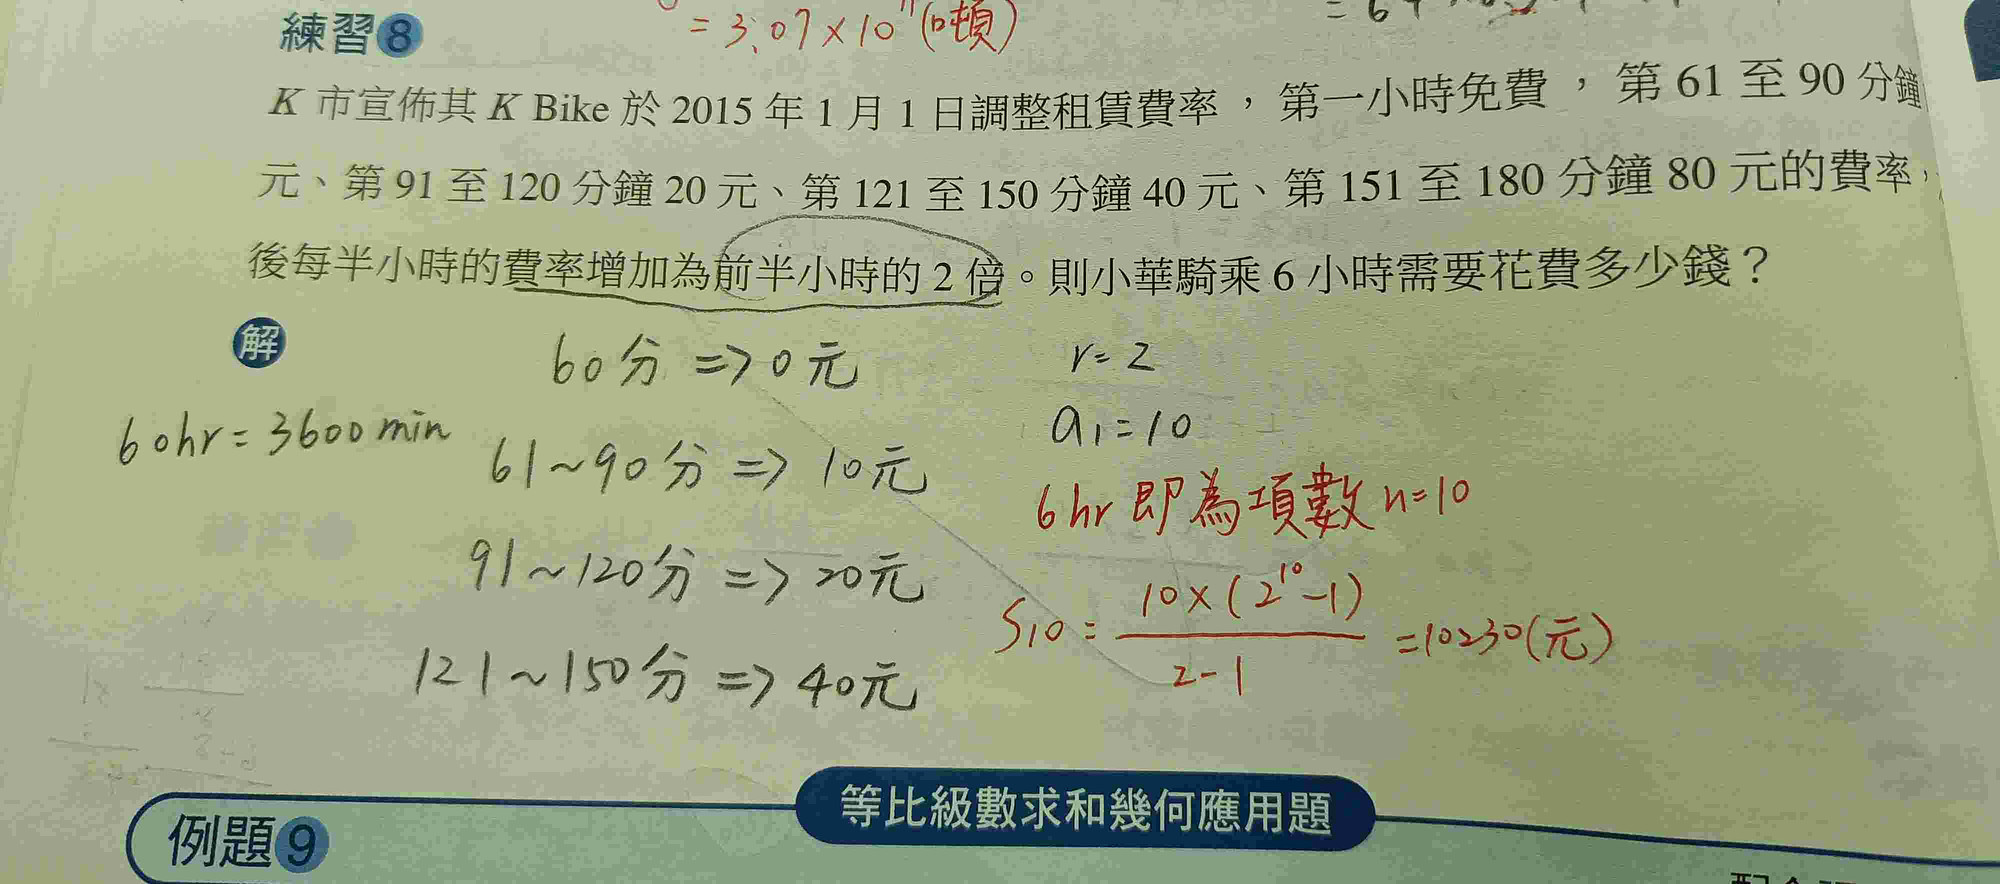 = 3.07 × 10¹¹ (噸)
練習 8
K 市宣佈其 K Bike 於 2015 年 1 月 1 日調整租賃費率，第一小時免費，第 61 至 90 分鐘
元、第 91 至 120 分鐘 20 元、第 121 至 150 分鐘 40 元、第 151 至 180 分鐘 80 元的費率，
後每半小時的費率增加為前半小時的 2 倍。則小華騎乘 6 小時需要花費多少錢？
解
60分 => 0元
r = 2
60hr = 3600min
61~90分 => 10元
a₁ = 10
6hr 即為項數 n=10
91~120分 => 20元
S₁₀ = 10×(2¹⁰-1) / 2-1 = 10230(元)
121~150分 => 40元
等比級數求和幾何應用題
例題 9